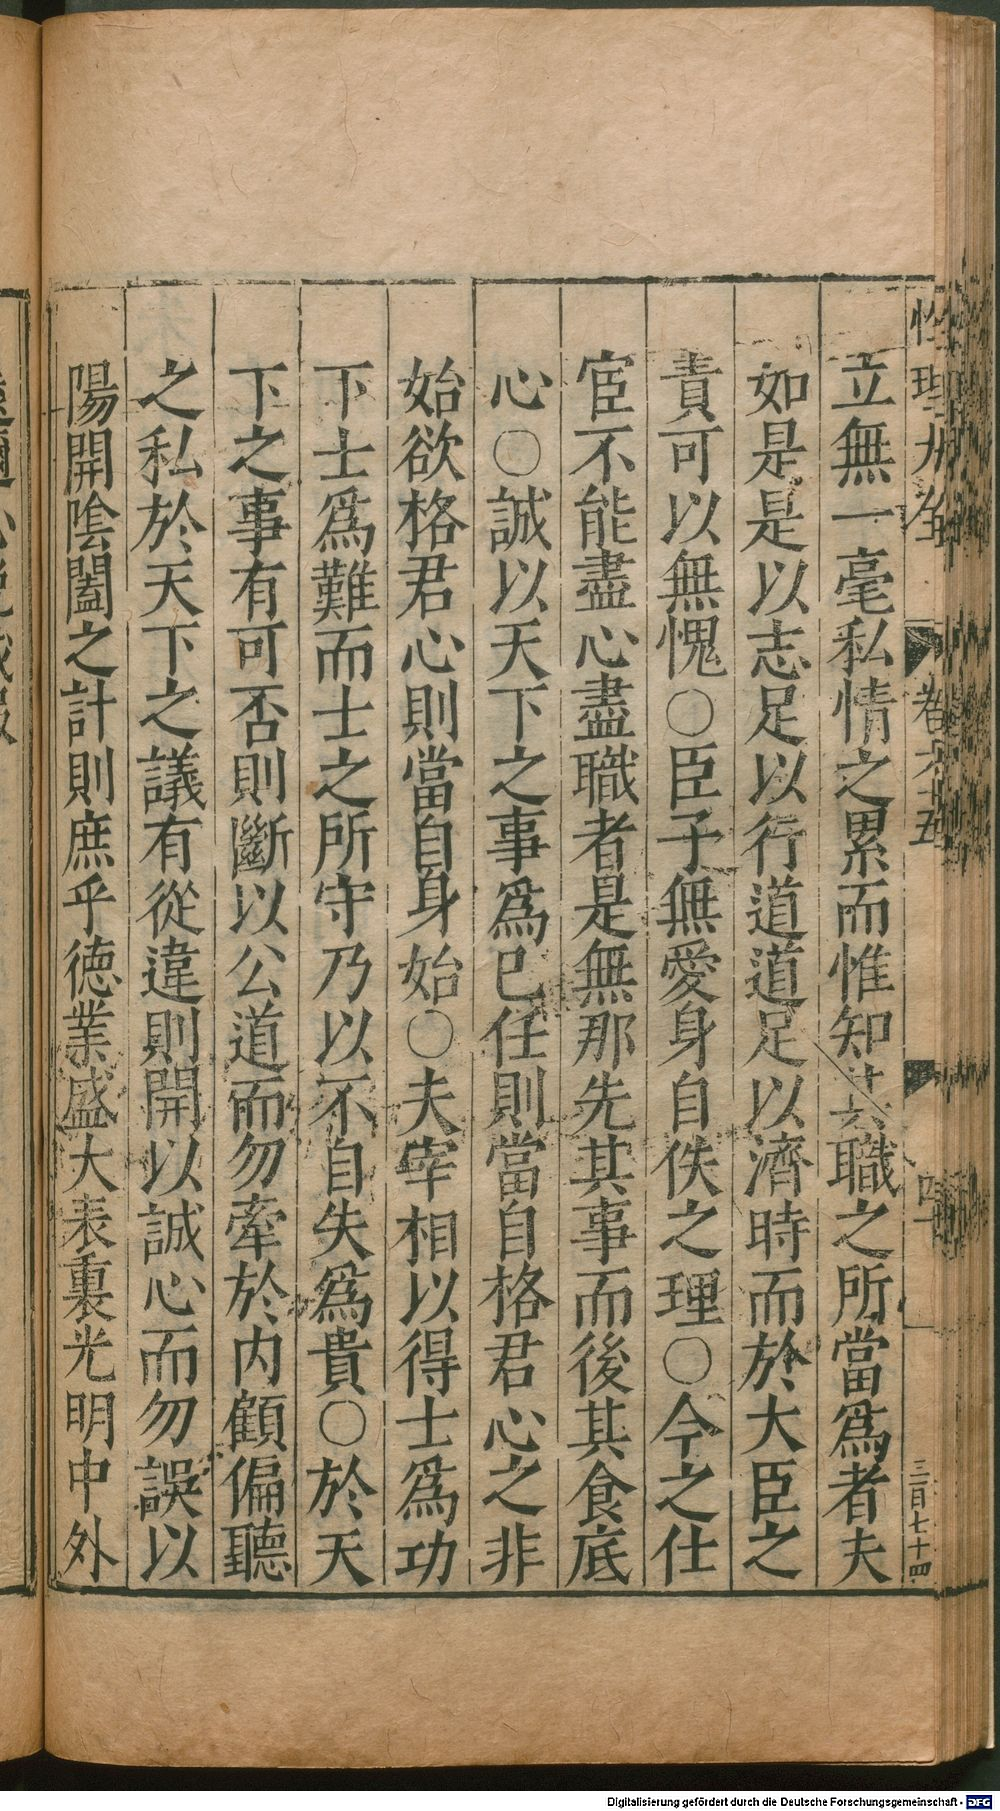 性理大全 卷六十五 三百七十四
立無一毫私情之累而惟知其職之所當爲者夫
如是是以志足以行道道足以濟時而於大臣之
責可以無愧○臣子無愛身自佚之理○今之仕
宦不能盡心盡職者是無那先其事而後其食底
心○誠以天下之事爲已任則當自格君心之非
始欲格君心則當自身始○夫宰相以得士爲功
下士爲難而士之所守乃以不自失爲貴○於天
下之事有可否則斷以公道而勿牽於内顧偏聽
之私於天下之議有從違則開以誠心而勿誤以
陽開陰闔之計則庶乎德業盛大表裏光明中外
Digitalisierung gefördert durch die Deutsche Forschungsgemeinschaft - DFG